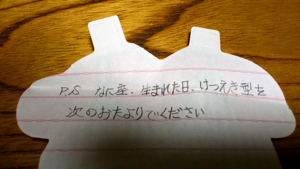 P.S なに座、生まれた日、けつえき型を
次のおたよりでください